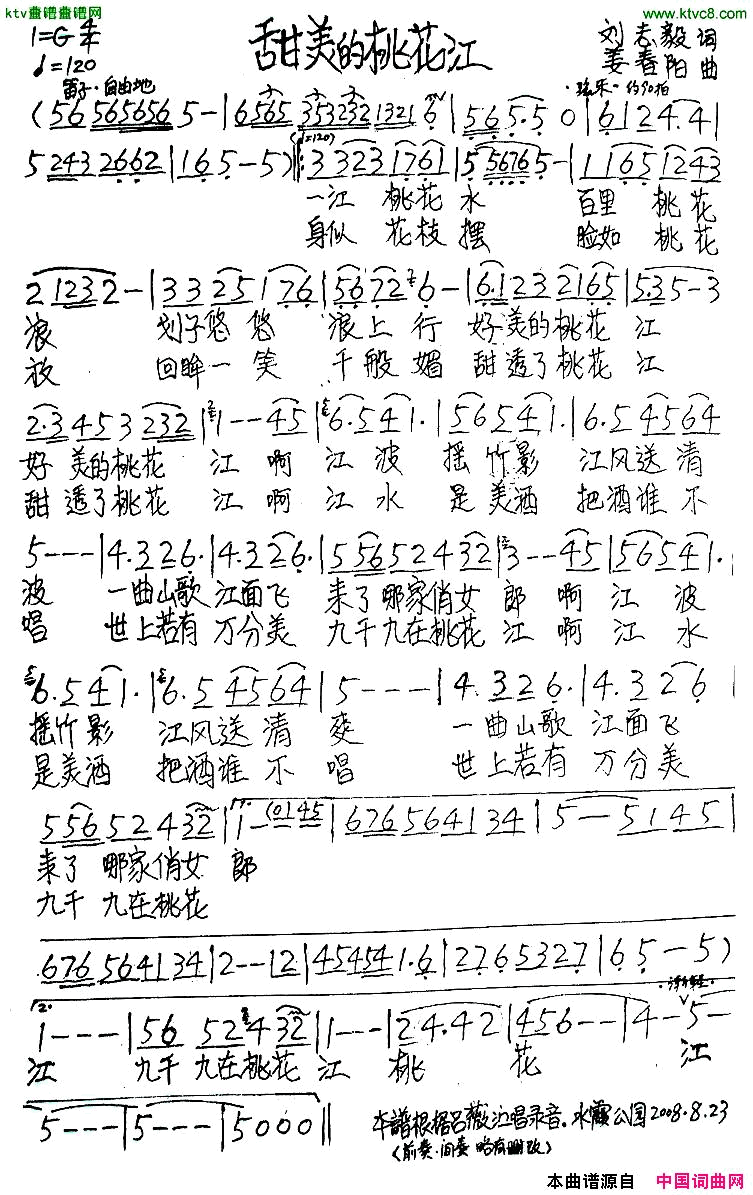 ktv歌谱歌谱网
www.ktvc8.com
1=G 4/4
♩=120
甜美的桃花江
刘志毅 词
姜春阳 曲
笛子·自由地
(56 565656 5-|6565 353232 1321 6|56 5·5 0|6124·4 4|
5 243 2662|165-5)‖:3 3231761|5 56765-|11651243
(♩=120)
一江 桃花 水 百里 桃花
身似 花枝 摆 脸如 桃花
2 1232-|3325176|56726-|6·123 2165|5·35-3
浪 划子悠悠 浪上行 好美的桃花 江
放 回眸一笑 千般媚 甜透了桃花 江
2·3 453 232|1--45|6·541·|56541·|6·54564
好 美的桃花 江 啊 江 波 摇竹影 江风送清
甜 透了桃花 江 啊 江 水 是美酒 把酒谁不
5---|4·326·|4·326·|55652432|3--45|56541·|
波 一曲山歌 江面飞 来了哪家俏女 郎 啊 江 波
唱 世上若有 万分美 九千九在桃花 江 啊 江 水
6·541·|6·54564|5---|4·326·|4·326|
摇竹影 江风送 清 爽 一曲山歌 江面飞
是美酒 把酒谁 不 唱 世上若有 万分美
55652432|1-(0145|676564134|5-5145|
来了 哪家俏女 郎
九千 九在桃花
676564134|2--12|454541·6|2765327|65-5)
1---|5652432|1---|24·42|456--|4-5-
江 九千 九在桃花 江 桃 花 江
5---|5---|5000‖
本谱根据吕薇演唱录音。水霞公园2008.8.23
(前奏·间奏 略有删改)
本曲谱源自 中国词曲网